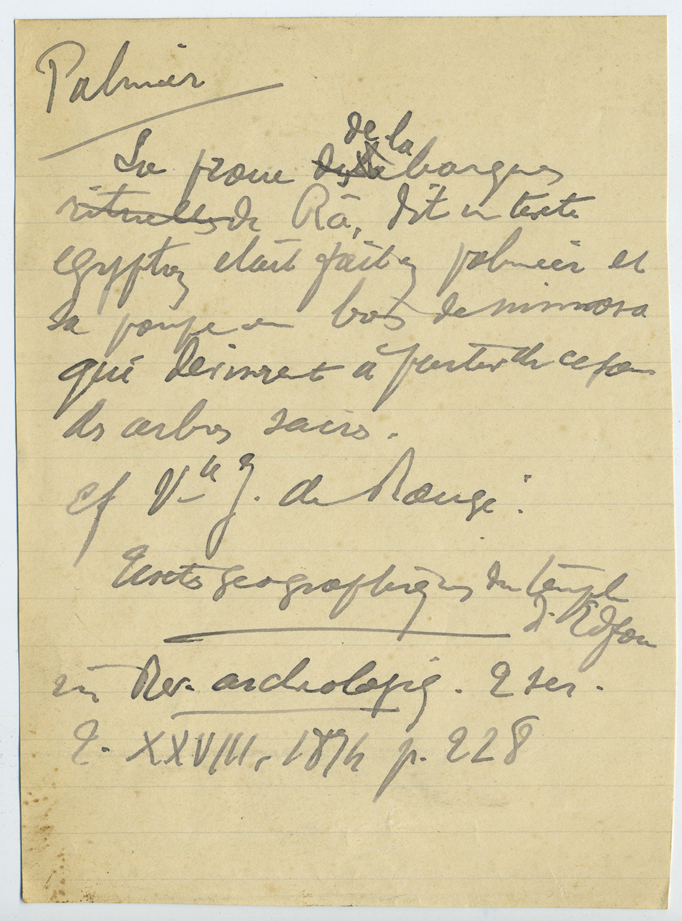 Palmier
La proue de la barque
rituelle de Râ, dit un texte
egyptien etait faite en palmier et
sa poupe en bois de mimosa
qui à ce
des arbres sacrés.
cf Vte J. de Rougé :
Textes geographiques du temple
d'Edfou
in Rev. archeologiq. 2 ser.
t. XXVIII, 1874 p. 228